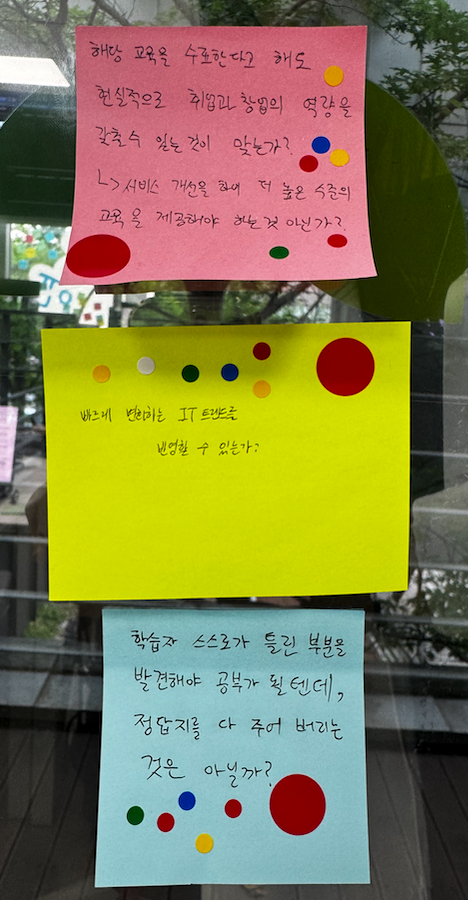 해당 교육을 수료한다고 해도
현실적으로 취업과 창업의 역량을
갖출 수 있는 것이 맞는가?
↳ 서비스 개선을 하여 더 높은 수준의
교육을 제공해야 하는 것 아닌가?
빠르게 변화하는 IT 트렌드를
반영할 수 있는가?
학습자 스스로가 틀린 부분을
발견해야 공부가 될텐데,
정답지를 다 주어 버리는
것은 아닐까?